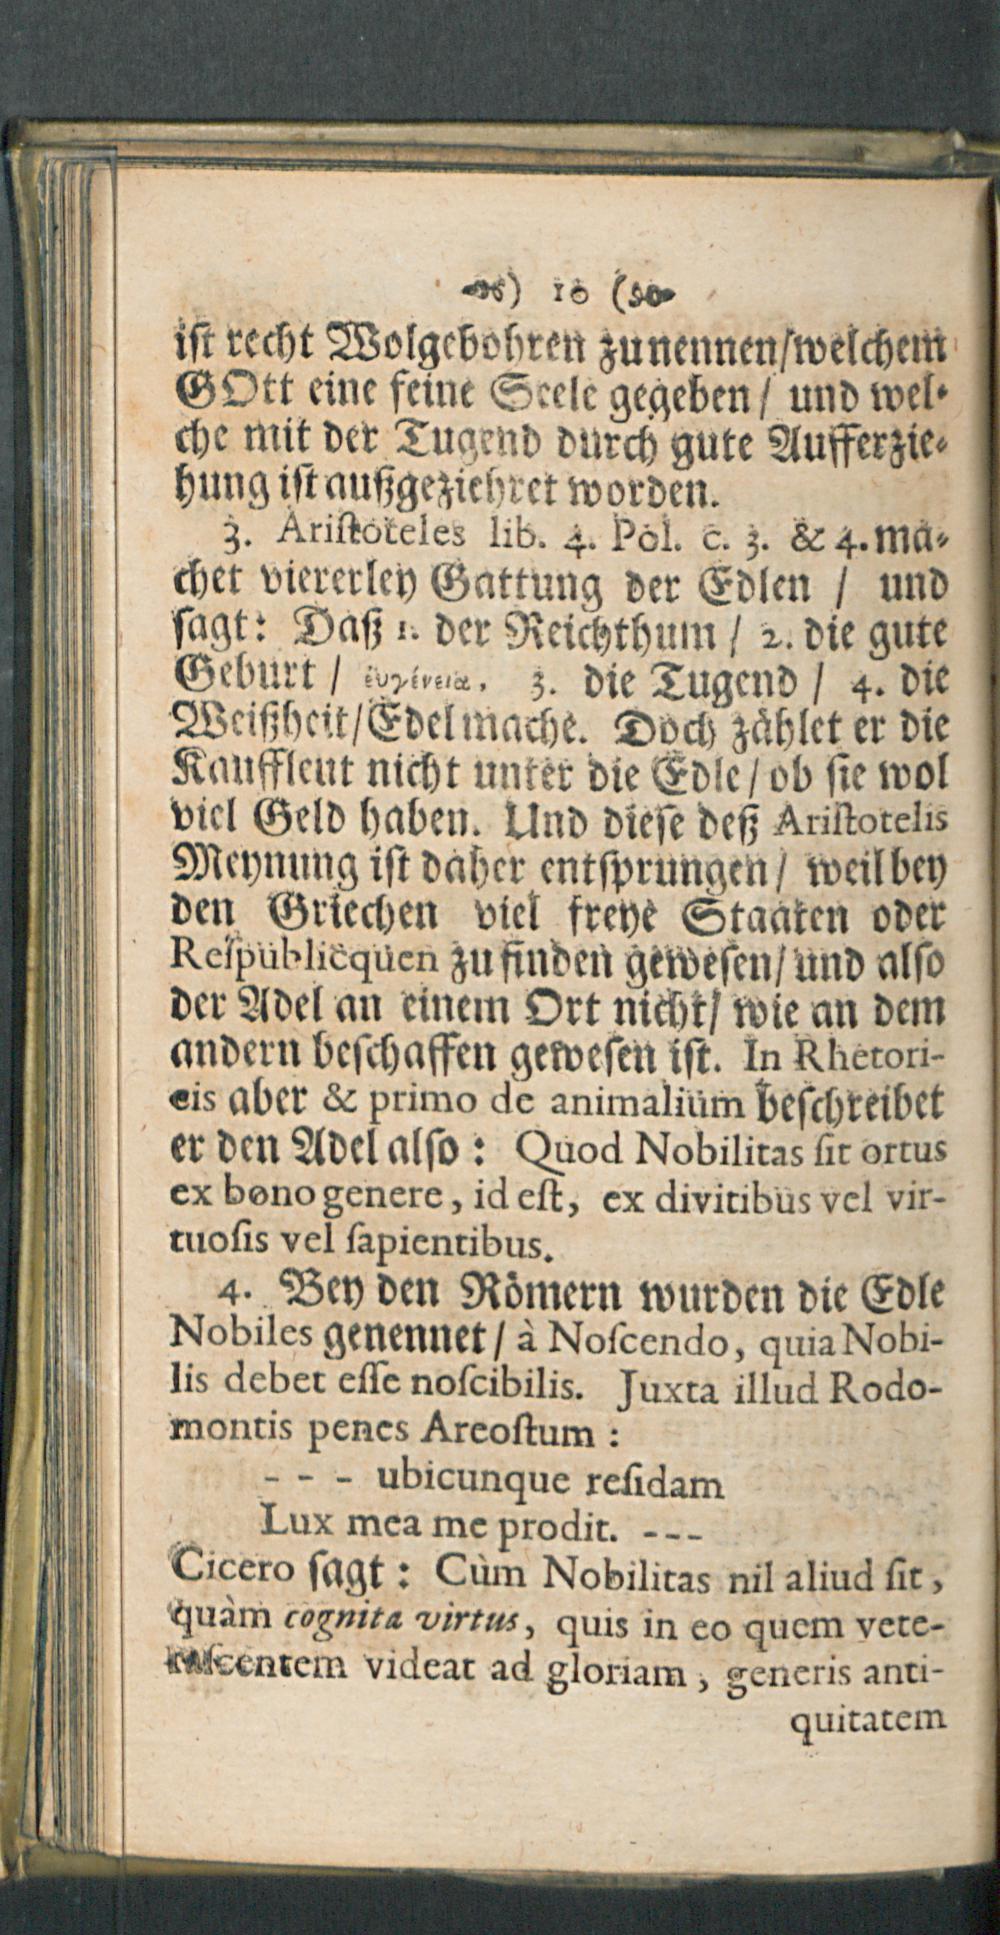 ) 10 (
ist recht Wolgebohren zunennen/welchem
GOtt eine feine Seele gegeben / und wel-
che mit der Tugend durch gute Aufferzie-
hung ist außgeziehret worden.
3. Ariſtoteles lib. 4. Pol. c. 3. & 4. ma-
chet viererley Gattung der Edlen / und
sagt: Daß 1. der Reichthum / 2. die gute
Geburt / ἐυγένεια, 3. die Tugend / 4. die
Weißheit/Edel mache. Doch zählet er die
Kauffleut nicht unter die Edle / ob sie wol
viel Geld haben. Und diese deß Ariſtotelis
Meynung ist daher entsprungen / weil bey
den Griechen viel freye Staaten oder
Reſpublicquen zu finden gewesen/ und also
der Adel an einem Ort nicht/ wie an dem
andern beschaffen gewesen ist. In Rhetori-
cis aber & primo de animalium beschreibet
er den Adel also : Quod Nobilitas ſit ortus
ex bono genere, id eſt, ex divitibus vel vir-
tuoſis vel ſapientibus.
4. Bey den Römern wurden die Edle
Nobiles genennet / à Noſcendo, quia Nobi-
lis debet eſſe noſcibilis. Juxta illud Rodo-
montis penes Areoſtum :
- - - ubicunque reſidam
Lux mea me prodit. - - -
Cicero sagt : Cùm Nobilitas nil aliud ſit,
quàm cognita virtus, quis in eo quem vete-
raſcentem videat ad gloriam, generis anti-
quitatem